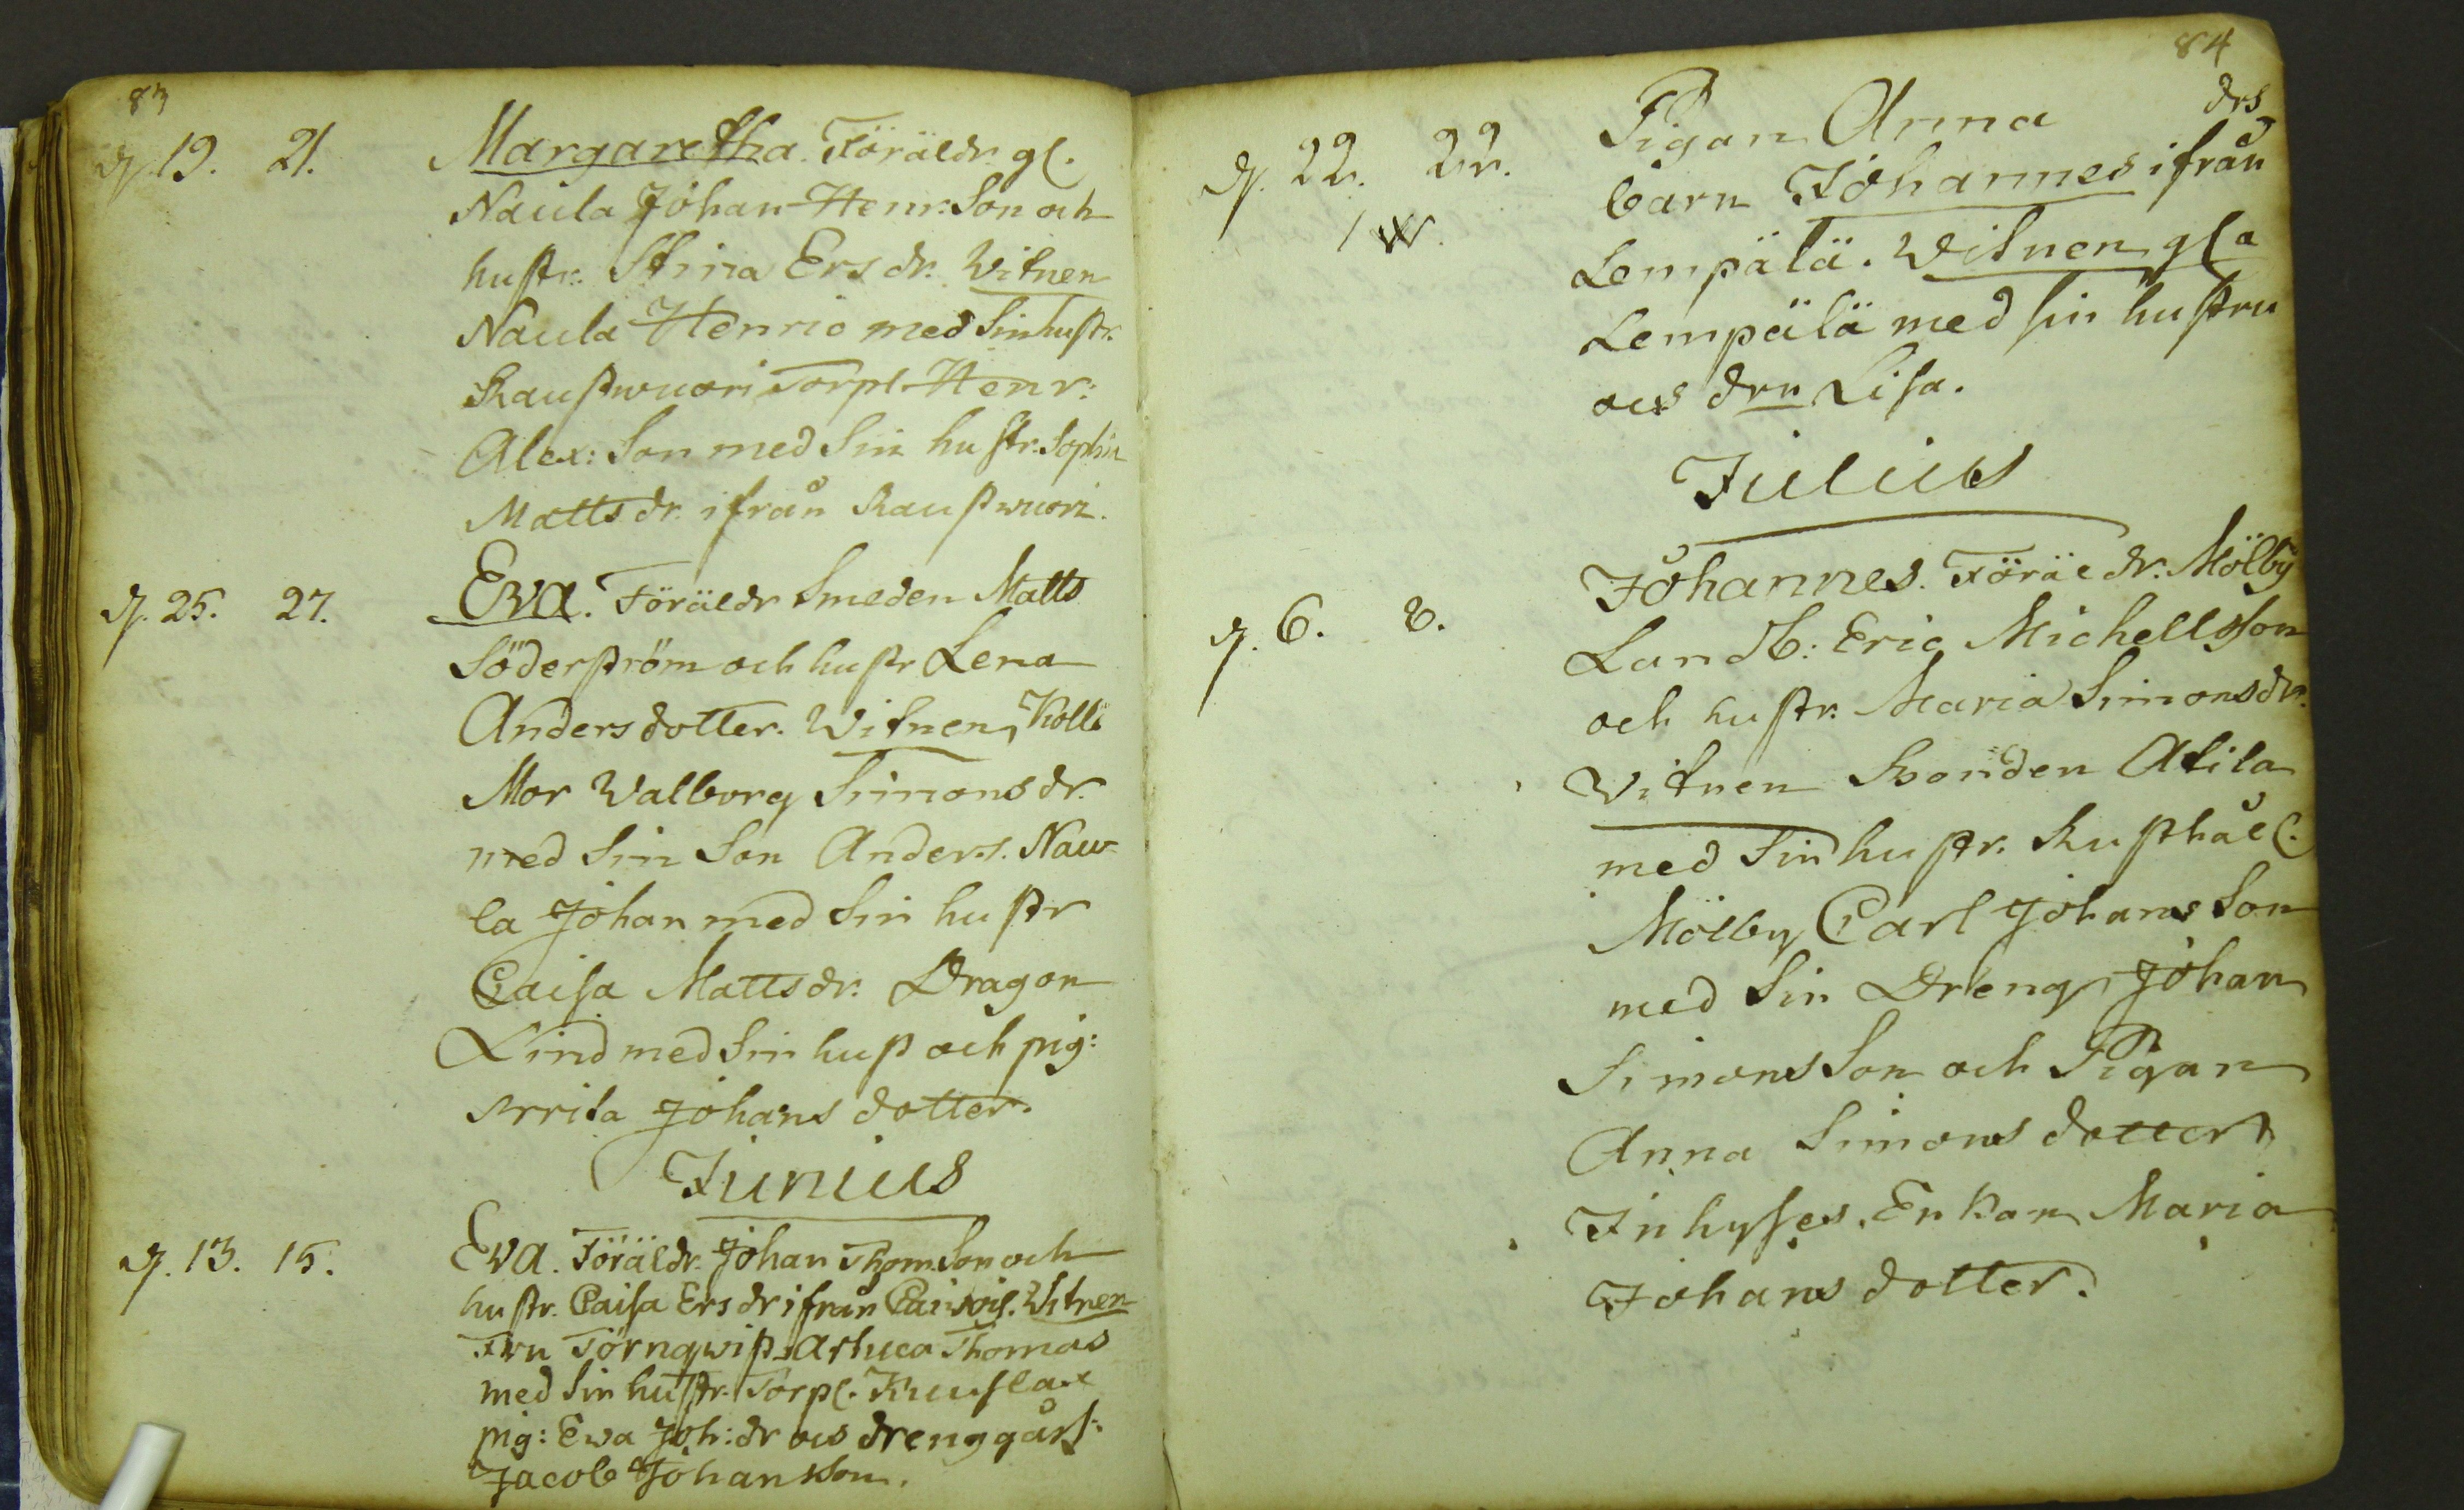 83
d. 19. 21. Margaretha. Föräldr. gl.
Naula Johan Henr: Son och
hustr. Stina Ersdr. Witnen
Naula Henric med Sin hustr.
Raustwuori Torpl. Henr:
Alex: Son med Sin hustr. Sophia
Mattsdr. ifrån Raustwuori.
d. 25. 27. Eva. Föräldr Smeden Matts
Söderström och hustr Lena
Andersdotter. Witnen, Kolli
Mor Walborg Simonsdr.
med Sin Son Anders. Nau-
la Johan med Sin hustr
Caisa Mattsdr. Dragon
Lind med Sin hust och pig:
Johansdotter.
Junius
d. 13. 15. Eva. Föräldr. Johan Thom. Son och
hustr. Caisa Ersdr ifrån Witnen
Fru Törnqwist. Thomas
med Sin hustr. Torpl. Kuuslax
pig: Ewa Joh: dr ocs drenggårs:
Jacob Johansson.
84
d. 22. 22. Pigan Anna drs
barn Johannes ifrån
Lempälä. Witnen gla
Lempälä med sin hustru
ocs dru Lisa.
Julius
d. 6. 8. Johannes. Föräldr. Mölby
Landb: Eric Michellsson
och hustr. Maria Simonsdr.
Witnen Bonden Atila
med Sin hustr. Rusthåll.
Mölby Carl Johans Son
med Sin Dreng Johan
Simons Son och Pigan
Anna Simons dotter
Inhyses. Enkan Maria
Johans dotter.